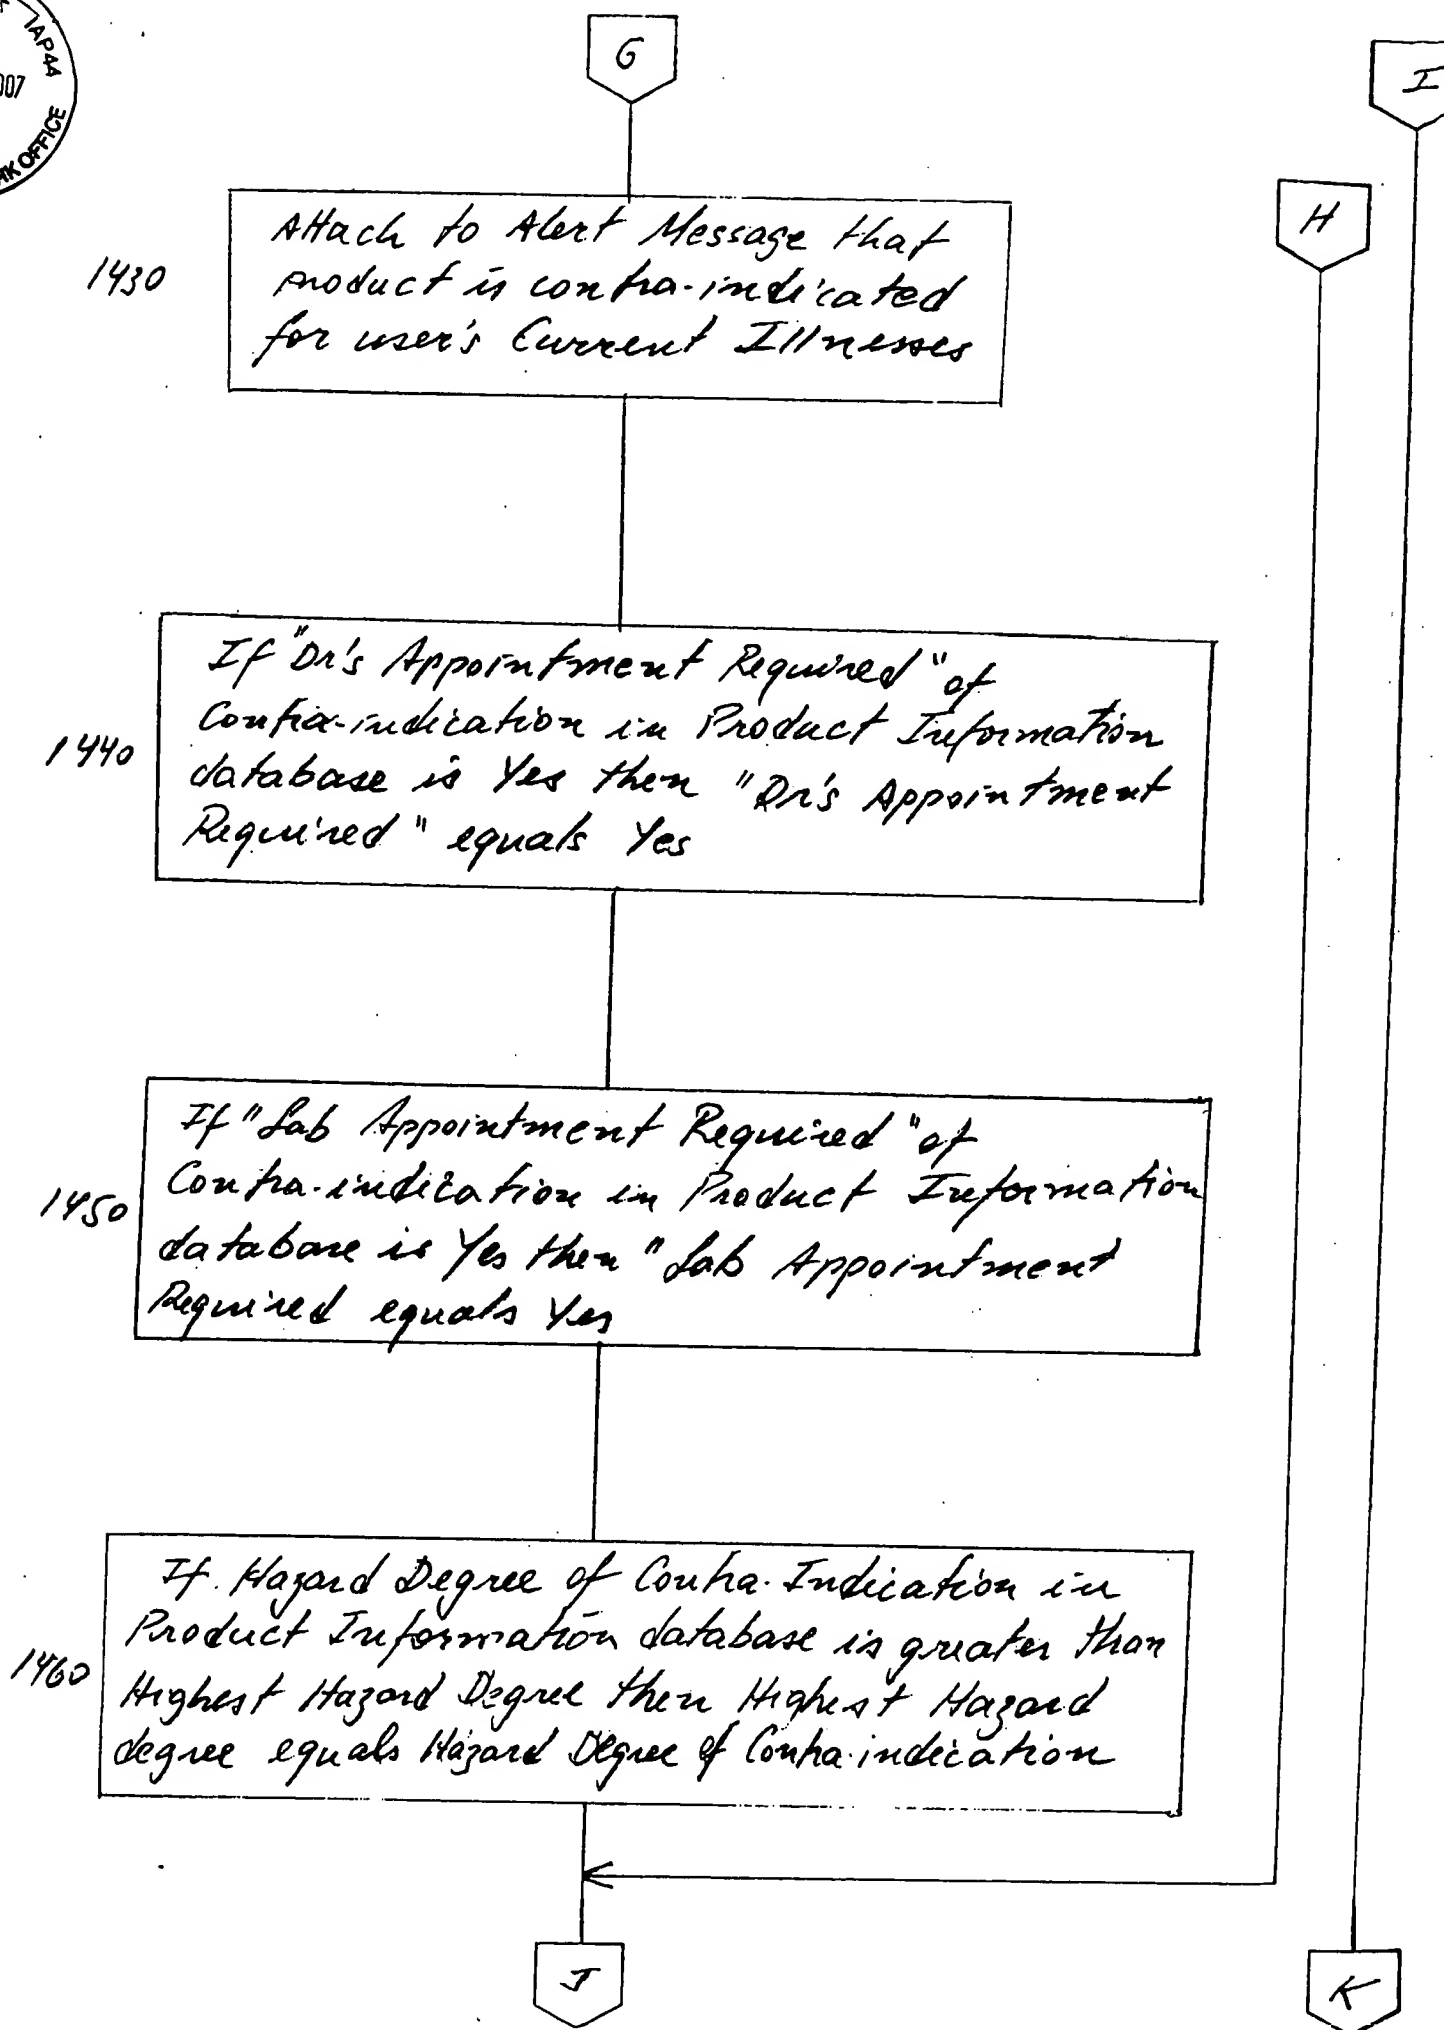 IAP44
007
OFFICE
G
I
H
1430
Attach to Alert Message that
product is contra-indicated
for user's Current Illnesses
1440
If "Dr's Appointment Required" of
Contra-indication in Product Information
database is Yes then "Dr's Appointment
Required" equals Yes
1450
If "Lab Appointment Required" of
Contra-indication in Product Information
database is Yes then "Lab Appointment
Required equals Yes
1460
If Hazard Degree of Contra-Indication in
Product Information database is greater than
Highest Hazard Degree then Highest Hazard
degree equals Hazard Degree of Contra-indication
J
K